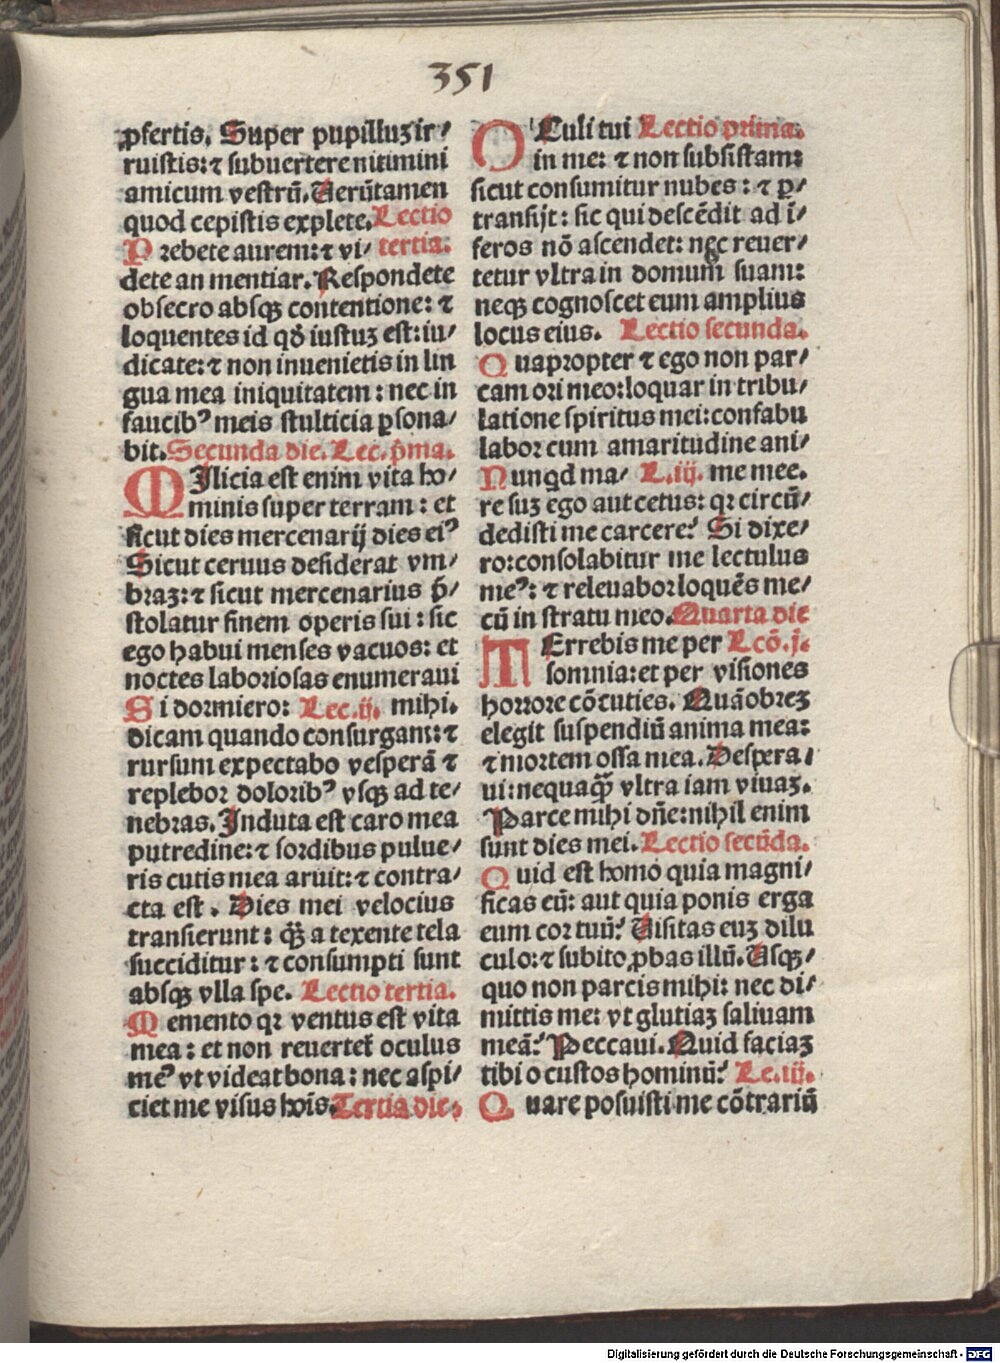 351
ꝓfertis. Super pupilluꝫ ir/
ruistis: ⁊ subuertere nitimini
amicum vestrū. Uerūtamen
quod cepistis explete. Lectio
Prebete aurem: ⁊ vi/ tertia.
dete an mentiar. Respondete
obsecro absqꝫ contentione: ⁊
loquentes id qđ iustuꝫ est: iu/
dicate: ⁊ non inuenietis in lin
gua mea iniquitatem: nec in
faucibꝰ meis stulticia ꝑsona/
bit. Secunda die. Lec. p̄ma.
MIlicia est enim vita ho/
minis super terram: et
sicut dies mercenarij dies eiꝰ
Sicut ceruus desiderat vm/
braꝫ: ⁊ sicut mercenarius p̄/
stolatur finem operis sui: sic
ego habui menses vacuos: et
noctes laboriosas enumeraui
Si dormiero: Lec. ij. mihi.
dicam quando consurgam: ⁊
rursum expectabo vesperā ⁊
replebor doloribꝰ vsqꝫ ad te/
nebras. Induta est caro mea
putredine: ⁊ sordibus pulue/
ris cutis mea aruit: ⁊ contra/
cta est. Dies mei velocius
transierunt: q̄ꝫ a texente tela
succiditur: ⁊ consumpti sunt
absqꝫ vlla spe. Lectio tertia.
Memento qꝛ ventus est vita
mea: et non reuertet̄ oculus
meꝰ vt videat bona: nec aspi/
ciet me visus hoīs. Tertia die.
OCuli tui Lectio prima.
in me: ⁊ non subsistam:
sicut consumitur nubes: ⁊ ꝑ/
transijt: sic qui descēdit ad i/
feros nō ascendet: nec reuer/
tetur vltra in domum suam:
neqꝫ cognoscet eum amplius
locus eius. Lectio secunda.
Quapropter ⁊ ego non par/
cam ori meo: loquar in tribu/
latione spiritus mei: confabu
labor cum amaritudine ani/
Nunqd ma/ L. iij. me mee.
re suꝫ ego aut cetus: qꝛ circū/
dedisti me carcere? Si dixe/
ro: consolabitur me lectulus
meꝰ: ⁊ releuabor loquēs me/
cū in stratu meo. Quarta die
TErrebis me per Lcō. j.
somnia: et per visiones
horrore cōcuties. Quāobreꝫ
elegit suspendiū anima mea:
⁊ mortem ossa mea. Despera/
ui: nequaq̄ꝫ vltra iam viuaꝫ.
Parce mihi dn̄e: nihil enim
sunt dies mei. Lectio secūda.
Quid est homo quia magni/
ficas eū: aut quia ponis erga
eum cor tuū? Uisitas euꝫ dilu
culo: ⁊ subito ꝓbas illū. Usqꝫ/
quo non parcis mihi: nec di/
mittis me: vt glutiaꝫ saliuam
meā? Peccaui. Quid faciaꝫ
tibi o custos hominū? Le. iij.
Quare posuisti me cōtrariū
Digitalisierung gefördert durch die Deutsche Forschungsgemeinschaft - DFG